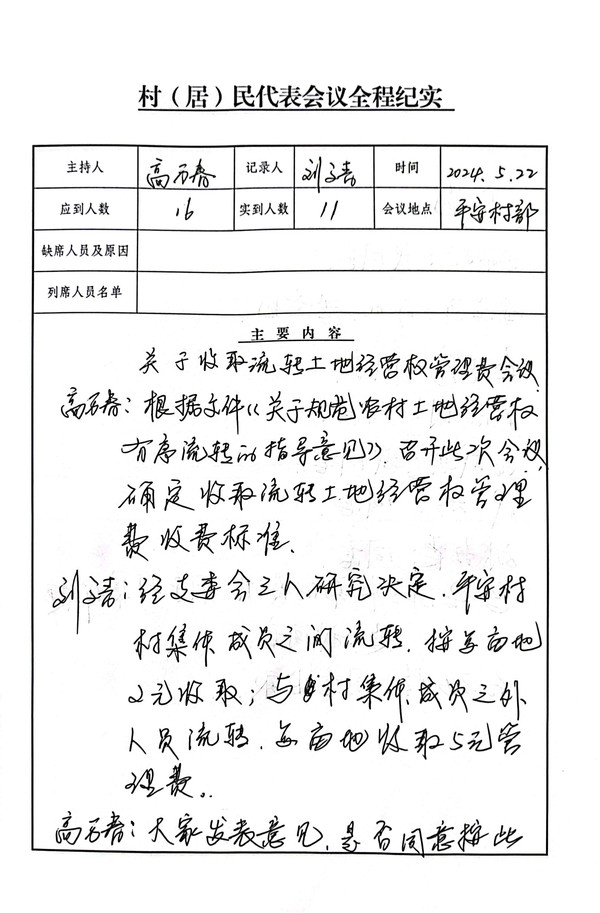 村（居）民代表会议全程纪实
主持人 高万春 记录人 刘文浩 时间 2024.5.22
应到人数 16 实到人数 11 会议地点 平安村部
缺席人员及原因
列席人员名单
主要内容
关于收取流转土地经营权管理费会议
高万春：根据文件《关于规范农村土地经营权
有序流转的指导意见》，召开此次会议，
确定收取流转土地经营权管理
费收费标准.
刘：经支委会三人研究决定，平安村
村集体成员之间流转，按每亩地
2元收取；与村集体成员之外
人员流转，每亩地收取5元管
理费。
高万春：大家发表意见，是否同意按此